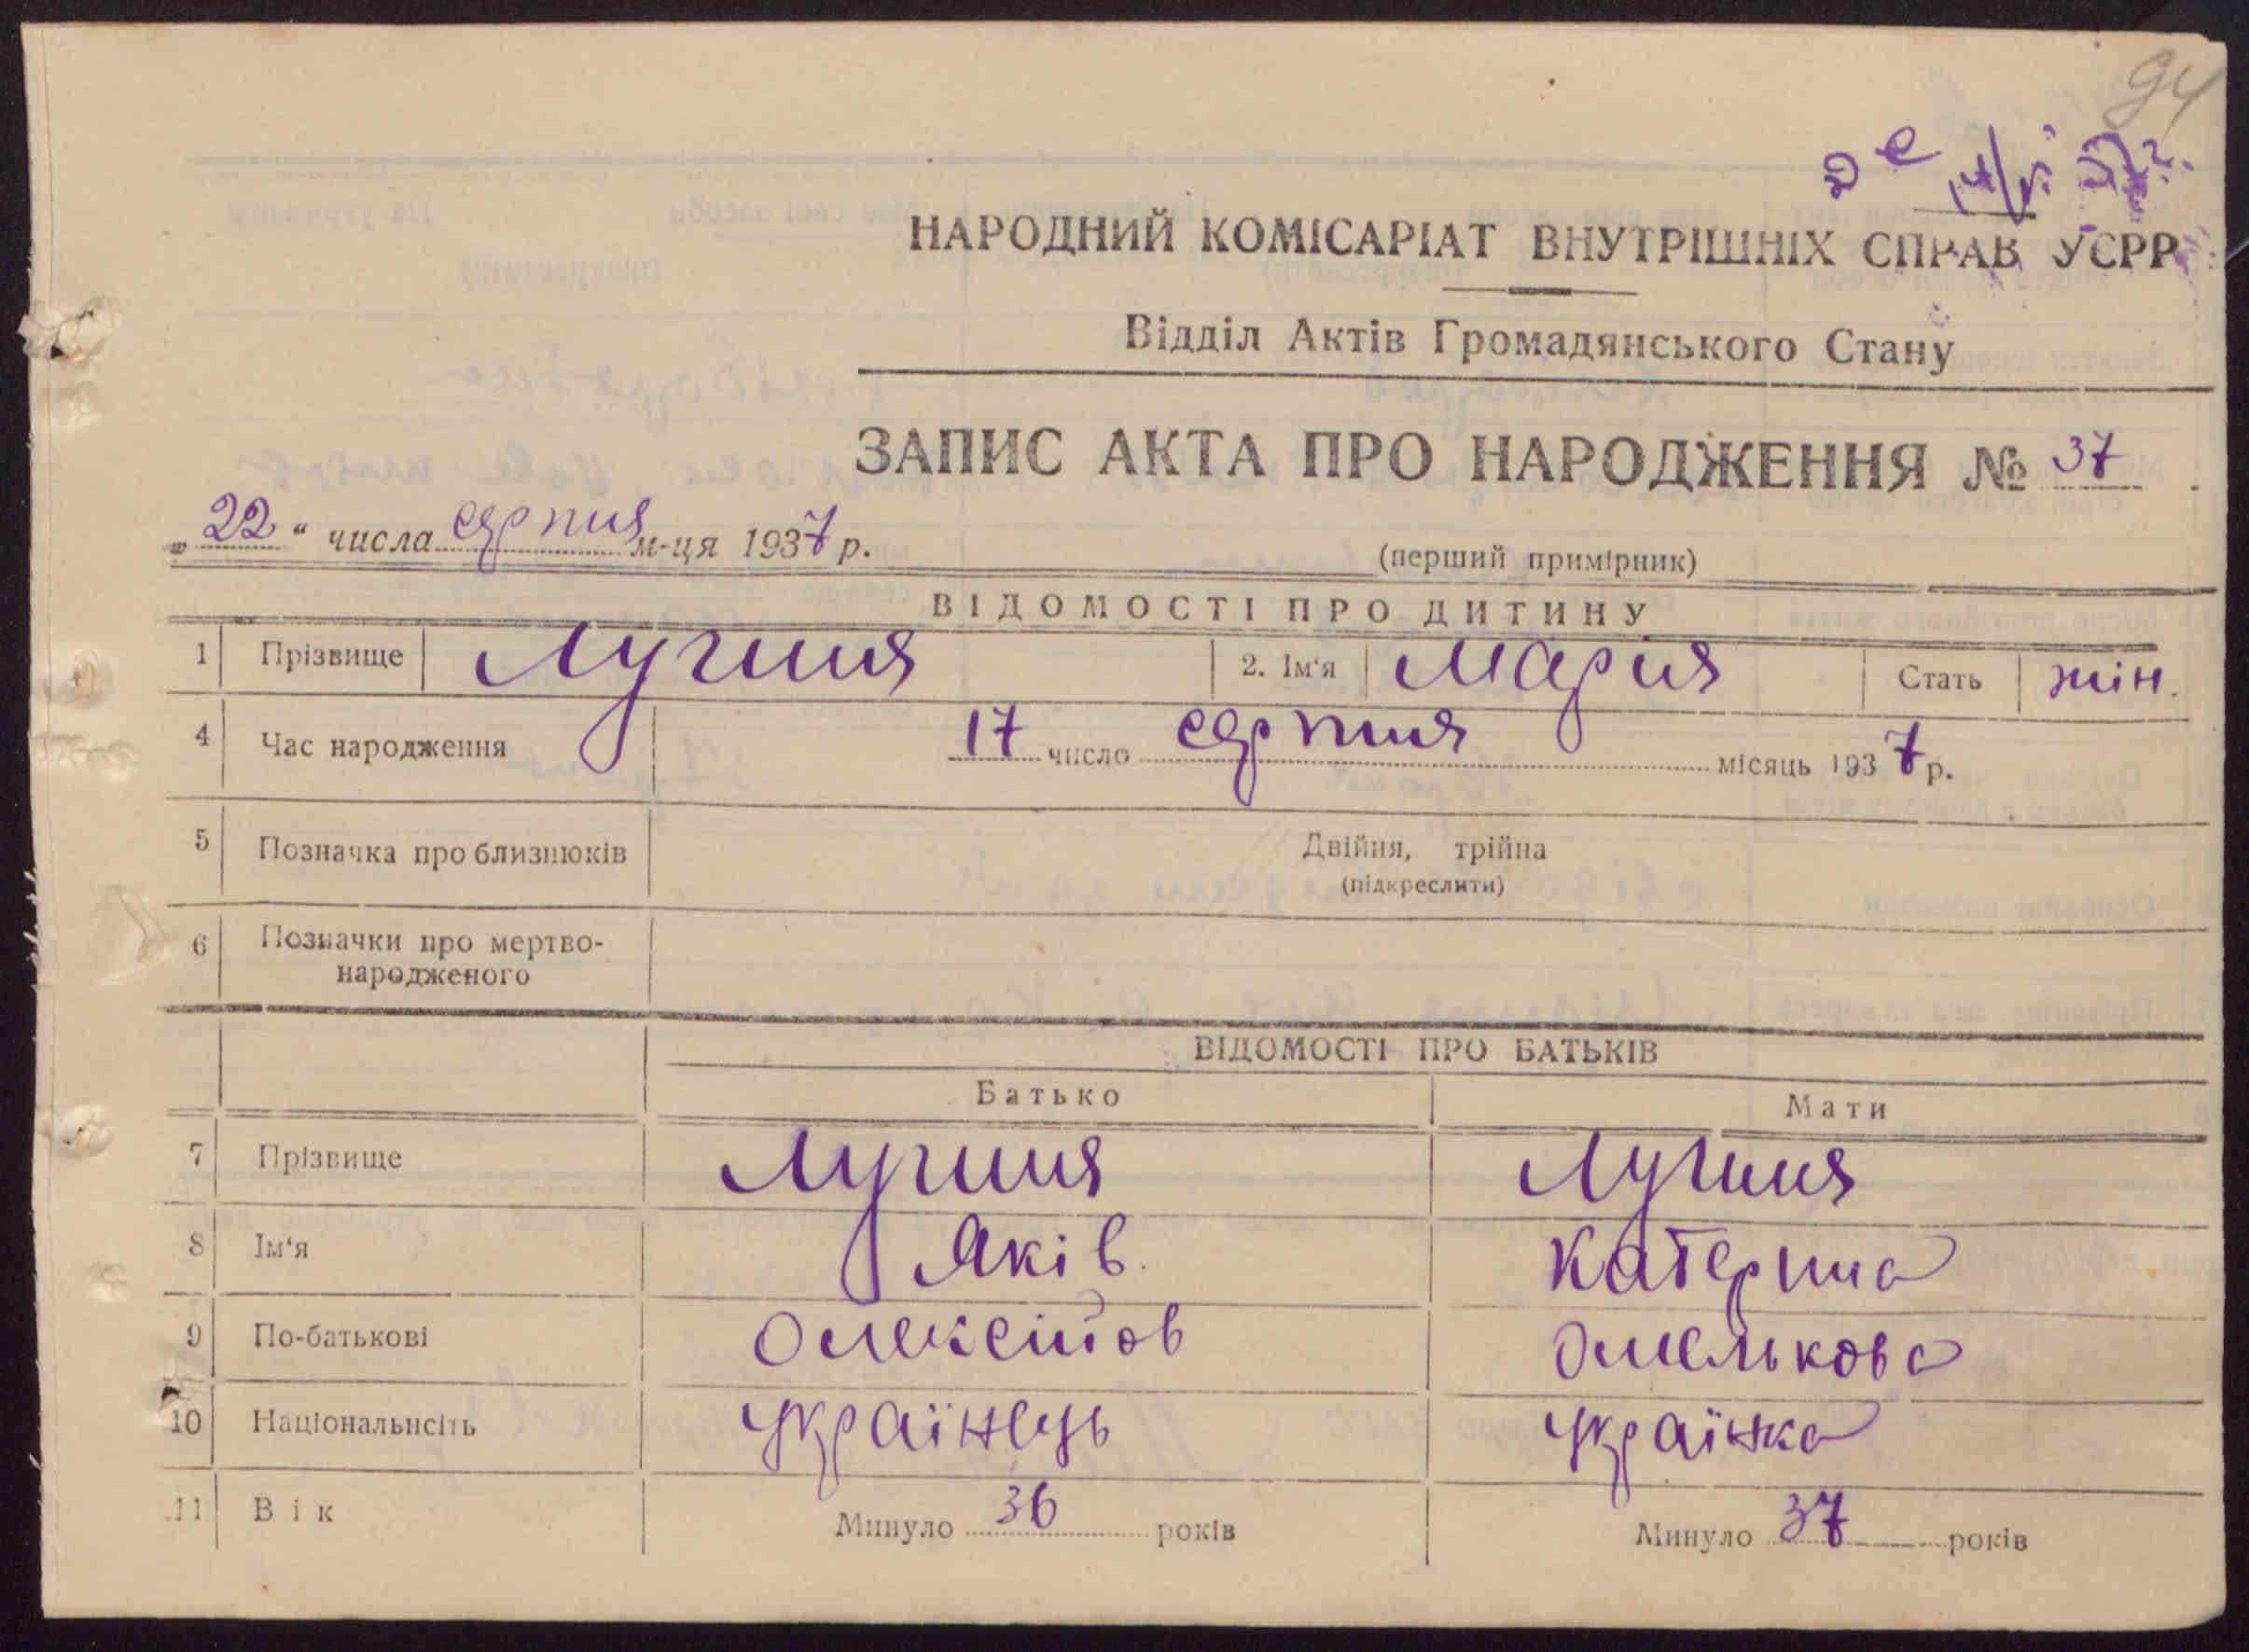 94
НАРОДНИЙ КОМІСАРІАТ ВНУТРІШНІХ СПРАВ УСРР
Відділ Актів Громадянського Стану
ЗАПИС АКТА ПРО НАРОДЖЕННЯ № 37
„22“ числа серпня м-ця 1937 р.
(перший примірник)
ВІДОМОСТІ ПРО ДИТИНУ
1 Прізвище Лугиня 2. Ім'я Мария Стать жін.
4 Час народження 17 число серпня місяць 1937 р.
5 Позначка про близнюків Двійня, трійна
(підкреслити)
6 Позначки про мертво-
народженого
ВІДОМОСТІ ПРО БАТЬКІВ
Батько Мати
7 Прізвище Лугиня Лугиня
8 Ім'я Яків Катерина
9 По-батькові Олексійов Омелькова
10 Національнсіть Українець Українка
11 Вік Минуло 36 років Минуло 37 років